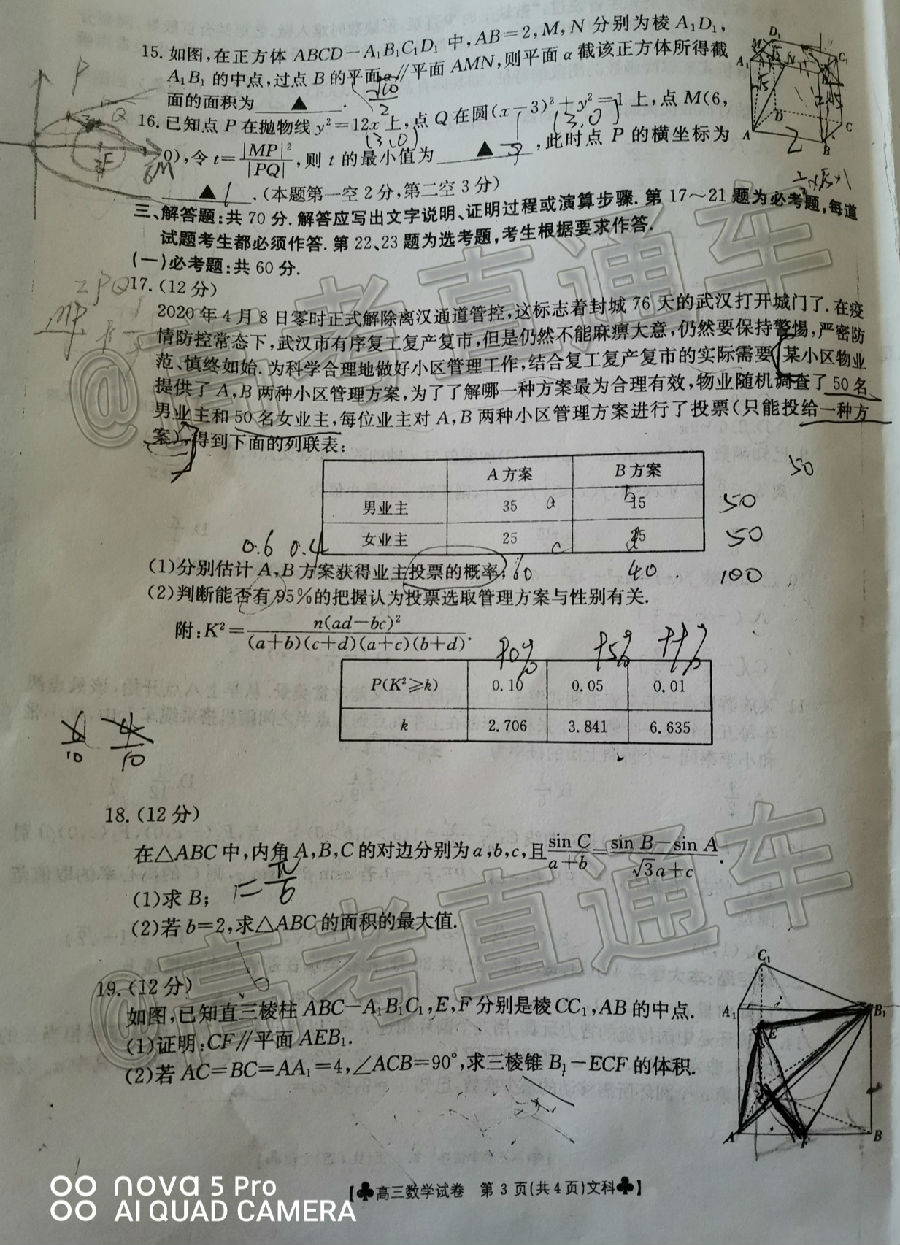 15. 如图,在正方体 ABCD-A₁B₁C₁D₁ 中,AB=2,M,N 分别为棱 A₁D₁,
A₁B₁ 的中点,过点 B 的平面α∥平面 AMN,则平面 α 截该正方体所得截
面的面积为 ▲ .
16. 已知点 P 在抛物线 y²=12x 上,点 Q 在圆(x-3)²+y²=1 上,点 M(6,
0),令 t=|MP|²/|PQ|,则 t 的最小值为 ▲ ,此时点 P 的横坐标为
▲ .(本题第一空 2 分,第二空 3 分)
三、解答题:共 70 分.解答应写出文字说明、证明过程或演算步骤.第 17~21 题为必考题,每道
试题考生都必须作答.第 22、23 题为选考题,考生根据要求作答.
(一)必考题:共 60 分.
17.(12 分)
2020 年 4 月 8 日零时正式解除离汉通道管控,这标志着封城 76 天的武汉打开城门了.在疫
情防控常态下,武汉市有序复工复产复市,但是仍然不能麻痹大意,仍然要保持警惕,严密防
范、慎终如始.为科学合理地做好小区管理工作,结合复工复产复市的实际需要,某小区物业
提供了 A,B 两种小区管理方案,为了了解哪一种方案最为合理有效,物业随机调查了 50 名
男业主和 50 名女业主,每位业主对 A,B 两种小区管理方案进行了投票(只能投给一种方
案),得到下面的列联表:
50
A 方案 B 方案
男业主 35 a 15 b 50
女业主 25 c 25 d 50
0.6 0.4
(1)分别估计 A,B 方案获得业主投票的概率; 60 40 100
(2)判断能否有 95%的把握认为投票选取管理方案与性别有关.
附:K²=n(ad-bc)²/(a+b)(c+d)(a+c)(b+d).
P(K²≥k) 0.10 0.05 0.01
k 2.706 3.841 6.635
18.(12 分)
在△ABC 中,内角 A,B,C 的对边分别为 a,b,c,且 sin C/a+b=sin B-sin A/√3a+c.
(1)求 B; π/6
(2)若 b=2,求△ABC 的面积的最大值.
19.(12 分)
如图,已知直三棱柱 ABC-A₁B₁C₁,E,F 分别是棱 CC₁,AB 的中点.
(1)证明:CF∥平面 AEB₁.
(2)若 AC=BC=AA₁=4,∠ACB=90°,求三棱锥 B₁-ECF 的体积.
C₁
A₁ B₁
E
A F B
【♣高三数学试卷 第 3 页(共 4 页)文科♣】
@高考直通车
@高考直通车
nova 5 Pro
AI QUAD CAMERA